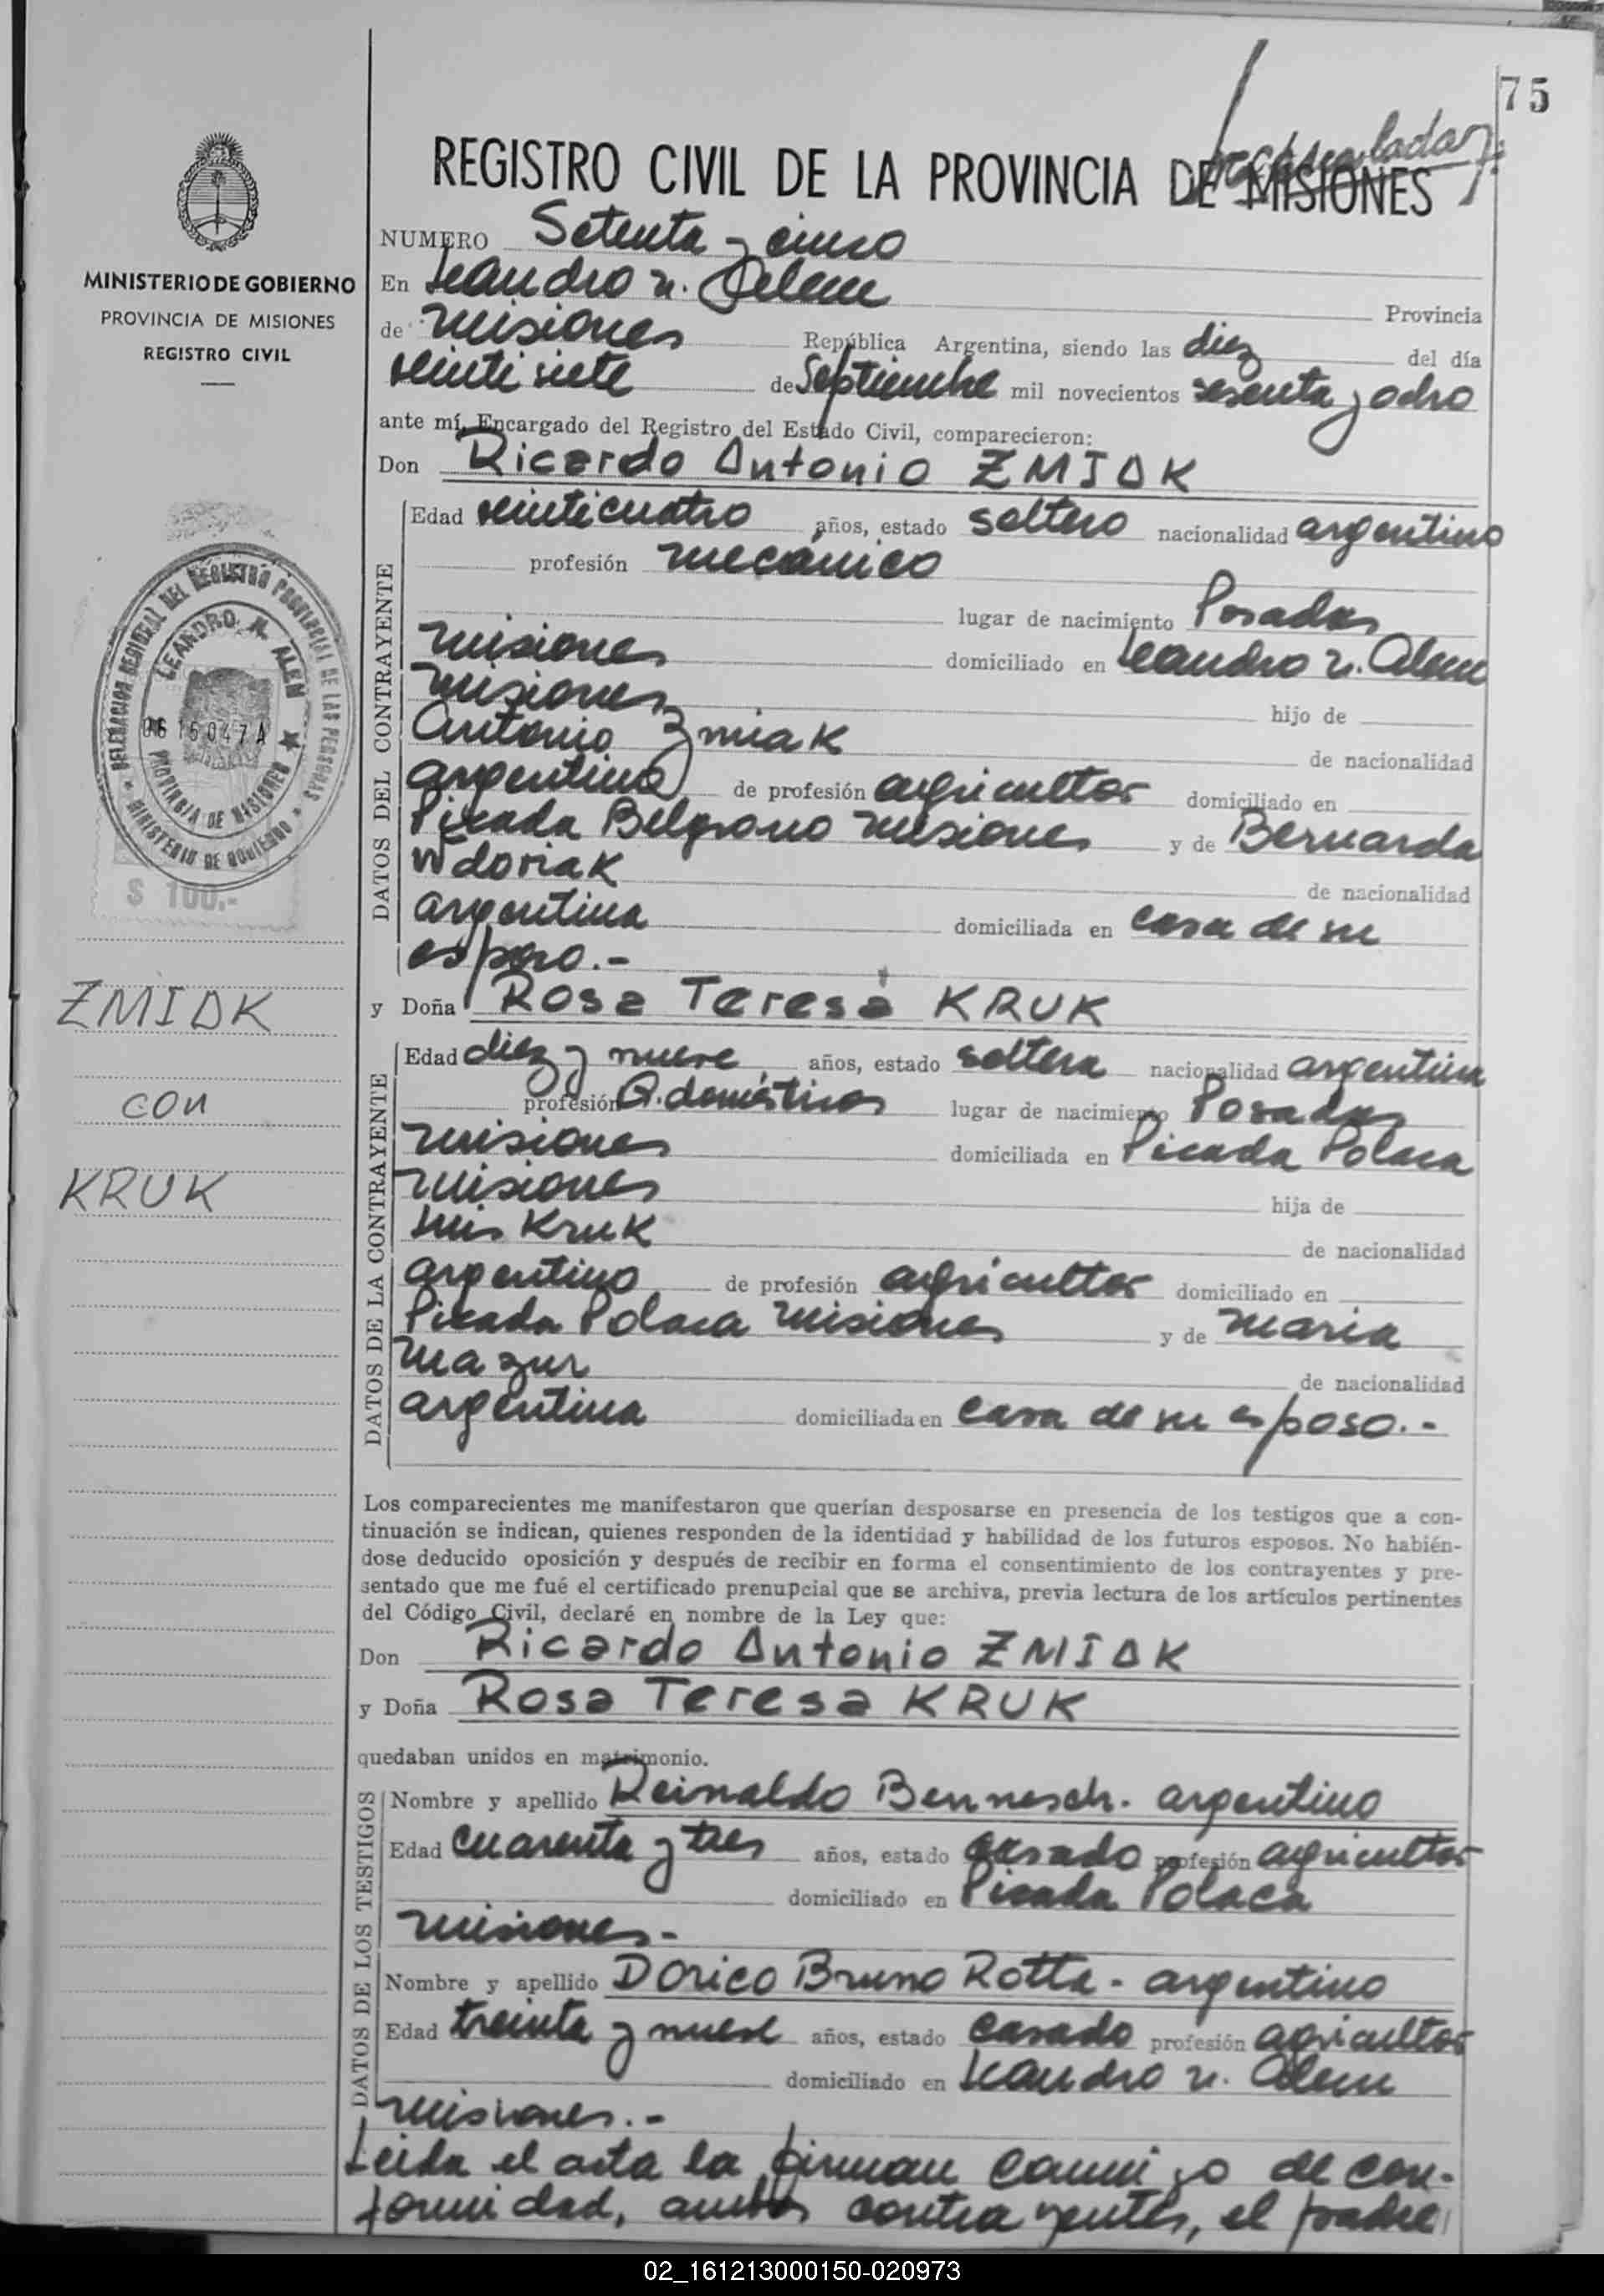 75
REGISTRO CIVIL DE LA PROVINCIA DE MISIONES
MINISTERIO DE GOBIERNO
PROVINCIA DE MISIONES
REGISTRO CIVIL
NUMERO Setenta y cinco
En Leandro N. Alem Provincia
de Misiones República Argentina, siendo las diez del día
veinti siete de Septiembre mil novecientos sesenta y ocho
ante mí, Encargado del Registro del Estado Civil, comparecieron:
Don Ricardo Antonio ZMIAK
DATOS DEL CONTRAYENTE
Edad veinticuatro años, estado soltero nacionalidad argentino
profesión mecánico
lugar de nacimiento Posadas
Misiones domiciliado en Leandro N. Alem
Misiones hijo de
Antonio Zmiak de nacionalidad
argentino de profesión agricultor domiciliado en
Picada Belgrano Misiones y de Bernarda
Wdoriak de nacionalidad
argentina domiciliada en casa de su
esposo.-
y Doña Rosa Teresa KRUK
DATOS DE LA CONTRAYENTE
Edad diez y nueve años, estado soltera nacionalidad argentina
profesión Q. domésticos lugar de nacimiento Posadas
Misiones domiciliada en Picada Polaca
Misiones hija de
Luis Kruk de nacionalidad
argentino de profesión agricultor domiciliado en
Picada Polaca Misiones y de Maria
Mazur de nacionalidad
argentina domiciliada en casa de su esposo.-
Los comparecientes me manifestaron que querían desposarse en presencia de los testigos que a con-
tinuación se indican, quienes responden de la identidad y habilidad de los futuros esposos. No habién-
dose deducido oposición y después de recibir en forma el consentimiento de los contrayentes y pre-
sentado que me fué el certificado prenupcial que se archiva, previa lectura de los artículos pertinentes
del Código Civil, declaré en nombre de la Ley que:
Don Ricardo Antonio ZMIAK
y Doña Rosa Teresa KRUK
quedaban unidos en matrimonio.
DATOS DE LOS TESTIGOS
Nombre y apellido Reinaldo Bennesch. argentino
Edad cuarenta y tres años, estado casado profesión agricultor
domiciliado en Picada Polaca
Misiones.-
Nombre y apellido Dorico Bruno Rotta - argentino
Edad treinta y nueve años, estado casado profesión agricultor
domiciliado en Leandro N. Alem
Misiones.-
Leida el acta la firman conmigo de con-
formidad, ambos contrayentes, el padre
DELEGACION REGIONAL DEL REGISTRO PROVINCIAL DE LAS PERSONAS
MINISTERIO DE GOBIERNO
LEANDRO N. ALEM
PROVINCIA DE MISIONES
$ 100.-
ZMIAK
con
KRUK
02_161213000150-020973